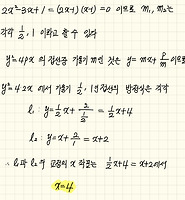 2x²-3x+1 = (2x-1)(x-1) = 0 이므로 m₁, m₂는
각각 1/2, 1 이라고 할 수 있다
y²=4px 의 접선중 기울기 m인 것은 y = mx + p/m 이므로
y²=4·2x 에서 기울기 1/2, 1인 접선의 방정식은 각각
l₁ : y = 1/2 x + 2/(1/2) = 1/2 x + 4
l₂ : y = x + 2/1 = x + 2
∴ l₁과 l₂의 교점의 x 좌표는 1/2 x + 4 = x + 2에서
x = 4